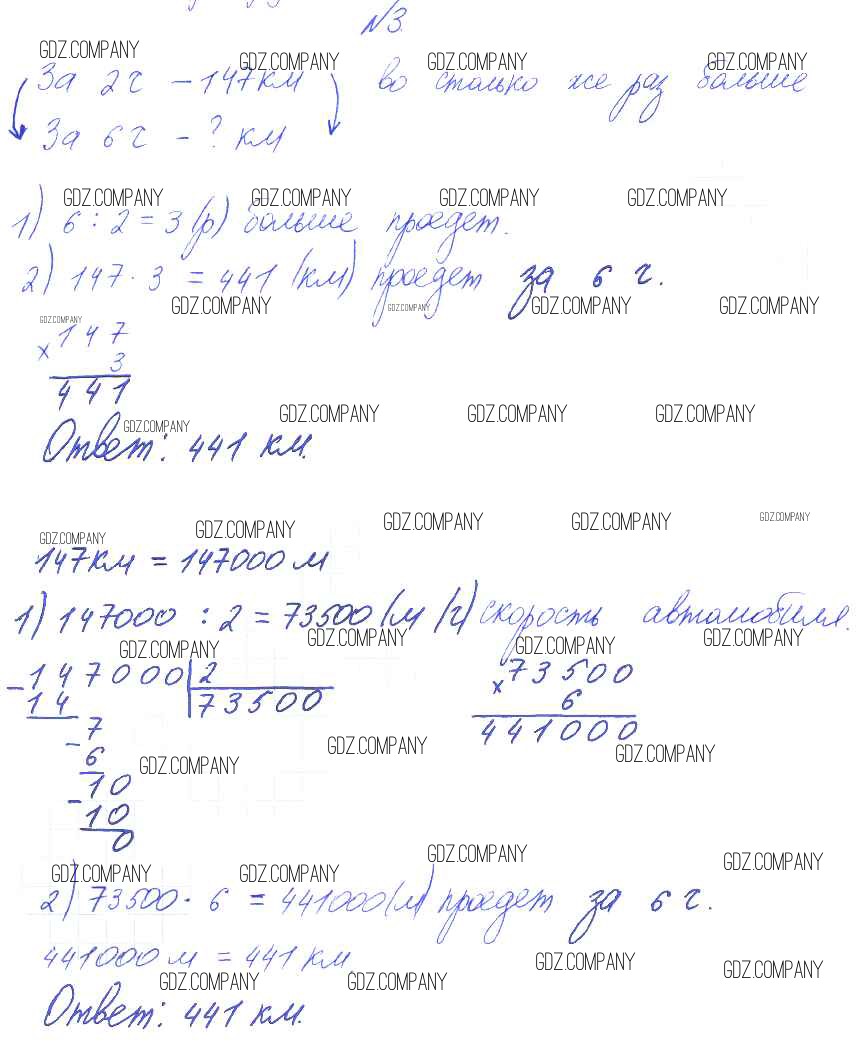 №3.
GDZ.COMPANY GDZ.COMPANY GDZ.COMPANY GDZ.COMPANY
За 2 ч – 147 км во столько же раз больше
За 6 ч – ? км
GDZ.COMPANY GDZ.COMPANY GDZ.COMPANY GDZ.COMPANY
1) 6 : 2 = 3 (р) больше проедет.
2) 147 · 3 = 441 (км) проедет за 6 ч.
GDZ.COMPANY GDZ.COMPANY GDZ.COMPANY GDZ.COMPANY
GDZ.COMPANY
× 147
3
441
GDZ.COMPANY GDZ.COMPANY GDZ.COMPANY GDZ.COMPANY
Ответ: 441 км.
GDZ.COMPANY GDZ.COMPANY GDZ.COMPANY GDZ.COMPANY GDZ.COMPANY
147 км = 147000 м
1) 147000 : 2 = 73500 (м/ч) скорость автомобиля.
GDZ.COMPANY GDZ.COMPANY GDZ.COMPANY GDZ.COMPANY
– 147000 | 2 × 73500
14 73500 6
– 7 441000
6
GDZ.COMPANY GDZ.COMPANY GDZ.COMPANY
– 10
10
0
GDZ.COMPANY GDZ.COMPANY GDZ.COMPANY GDZ.COMPANY
2) 73500 · 6 = 441000 (м) проедет за 6 ч.
441000 м = 441 км
GDZ.COMPANY GDZ.COMPANY GDZ.COMPANY GDZ.COMPANY
Ответ: 441 км.